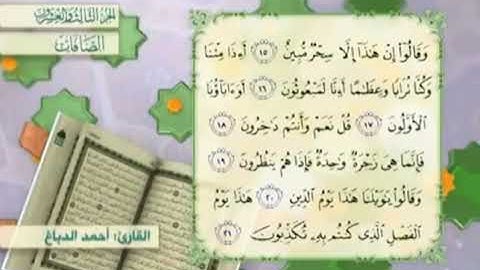 الجزء الثالث والعشرون
الصافات
وَقَالُوٓا۟ إِنْ هَٰذَآ إِلَّا سِحْرٌ مُّبِينٌ ١٥ أَءِذَا مِتْنَا
وَكُنَّا تُرَابًا وَعِظَٰمًا أَءِنَّا لَمَبْعُوثُونَ ١٦ أَوَءَابَآؤُنَا
ٱلْأَوَّلُونَ ١٧ قُلْ نَعَمْ وَأَنتُمْ دَٰخِرُونَ ١٨
فَإِنَّمَا هِىَ زَجْرَةٌ وَٰحِدَةٌ فَإِذَا هُمْ يَنظُرُونَ ١٩
وَقَالُوا۟ يَٰوَيْلَنَا هَٰذَا يَوْمُ ٱلدِّينِ ٢٠ هَٰذَا يَوْمُ
ٱلْفَصْلِ ٱلَّذِى كُنتُم بِهِۦ تُكَذِّبُونَ ٢١
القارئ: أحمد الدباغ